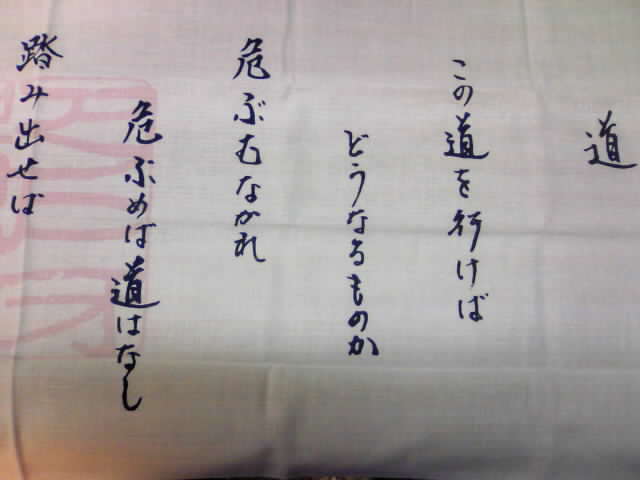 道
この道を行けば
どうなるものか
危ぶむなかれ
危ぶめば道はなし
踏み出せば